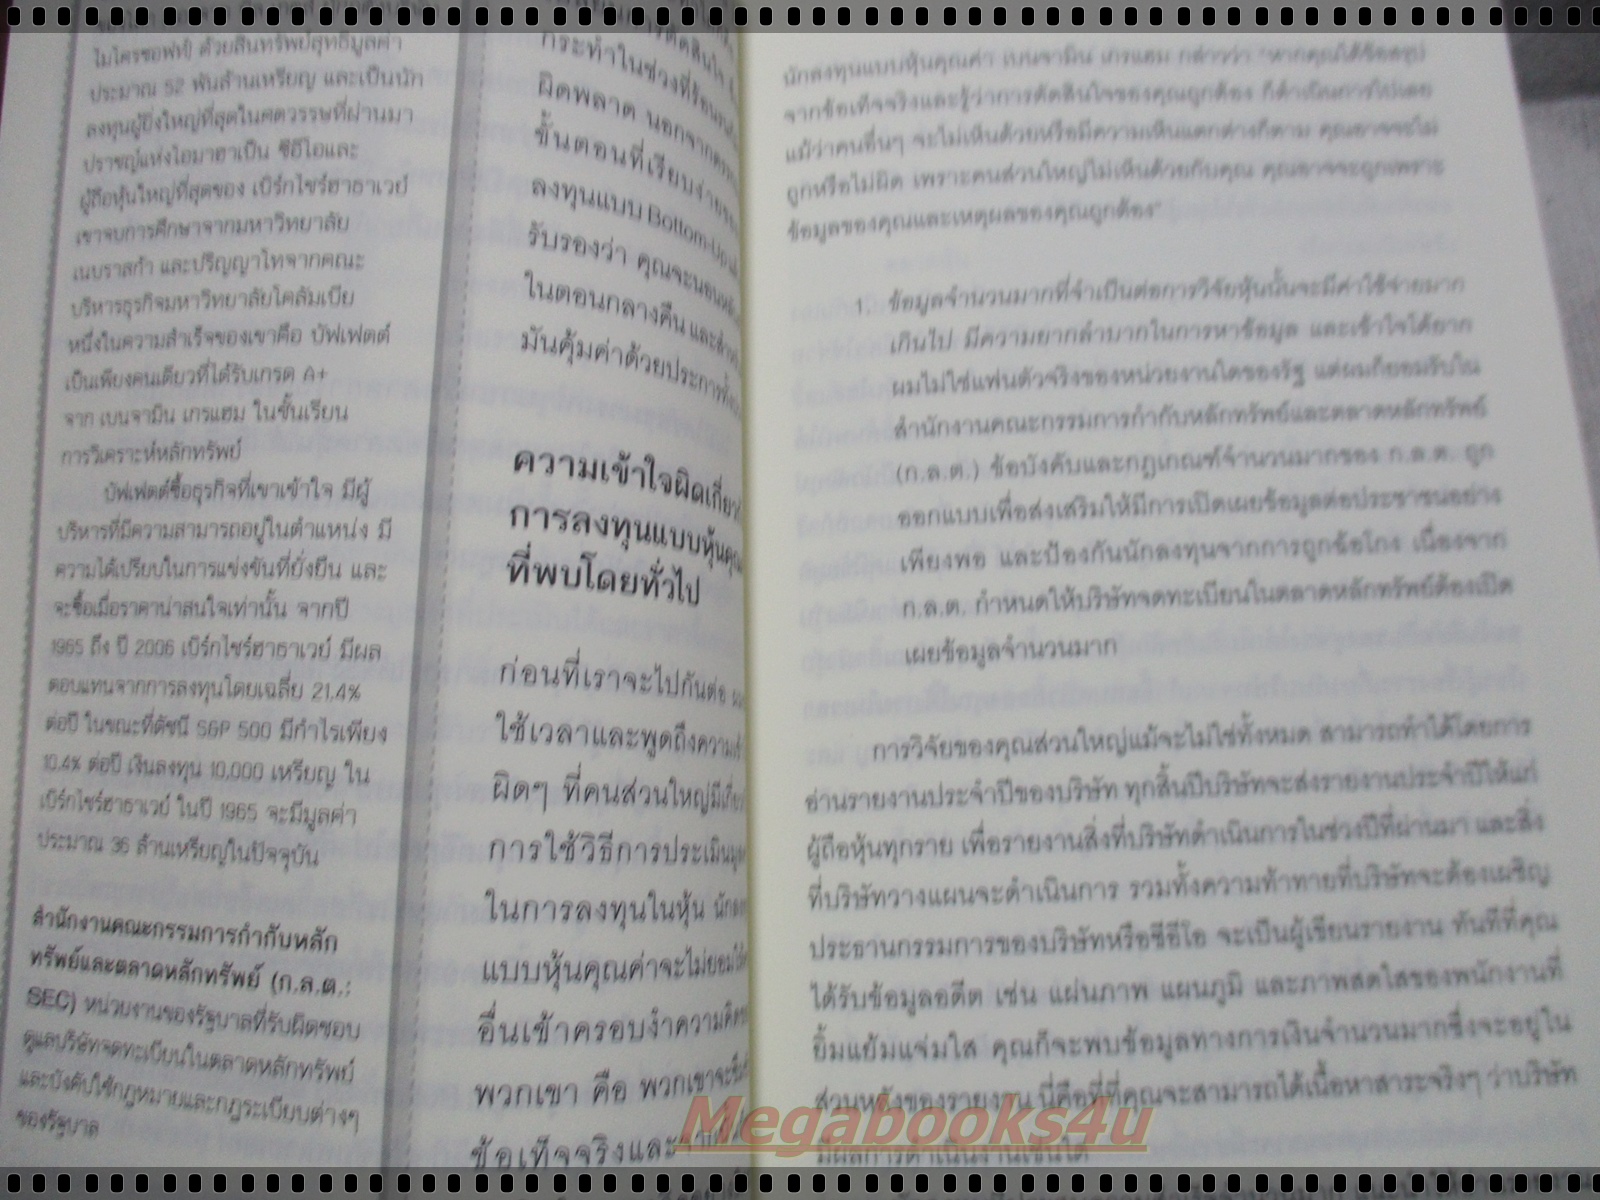 ไมโครซอฟท์) ด้วยสินทรัพย์สุทธิมูลค่า
ประมาณ 52 พันล้านเหรียญ และเป็นนัก
ลงทุนผู้ยิ่งใหญ่ที่สุดในศตวรรษที่ผ่านมา
ปราชญ์แห่งโอมาฮาเป็น ซีอีโอและ
ผู้ถือหุ้นใหญ่ที่สุดของ เบิร์กไชร์ฮาธาเวย์
เขาจบการศึกษาจากมหาวิทยาลัย
เนบราสก้า และปริญญาโทจากคณะ
บริหารธุรกิจมหาวิทยาลัยโคลัมเบีย
หนึ่งในความสำเร็จของเขาคือ บัฟเฟตต์
เป็นเพียงคนเดียวที่ได้รับเกรด A+
จาก เบนจามิน เกรแฮม ในชั้นเรียน
การวิเคราะห์หลักทรัพย์
บัฟเฟตต์ซื้อธุรกิจที่เขาเข้าใจ มีผู้
บริหารที่มีความสามารถอยู่ในตำแหน่ง มี
ความได้เปรียบในการแข่งขันที่ยั่งยืน และ
จะซื้อเมื่อราคาน่าสนใจเท่านั้น จากปี
1965 ถึง ปี 2006 เบิร์กไชร์ฮาธาเวย์ มีผล
ตอบแทนจากการลงทุนโดยเฉลี่ย 21.4%
ต่อปี ในขณะที่ดัชนี S&P 500 มีกำไรเพียง
10.4% ต่อปี เงินลงทุน 10,000 เหรียญ ใน
เบิร์กไชร์ฮาธาเวย์ ในปี 1965 จะมีมูลค่า
ประมาณ 36 ล้านเหรียญในปัจจุบัน
สำนักงานคณะกรรมการกำกับหลัก
ทรัพย์และตลาดหลักทรัพย์ (ก.ล.ต.:
SEC) หน่วยงานของรัฐบาลที่รับผิดชอบ
ดูแลบริษัทจดทะเบียนในตลาดหลักทรัพย์
และบังคับใช้กฎหมายและกฎระเบียบต่างๆ
ของรัฐบาล
กระทำในช่วงที่ร้อนรน
ผิดพลาด นอกจาก
ขั้นตอนที่เรียบง่าย
ลงทุนแบบ Bottom-Up
รับรองว่า คุณจะนอนหลับ
ในตอนกลางคืน และ
มันคุ้มค่าด้วยประการทั้ง
ความเข้าใจผิดเกี่ยว
การลงทุนแบบหุ้นคุณ
ที่พบโดยทั่วไป
ก่อนที่เราจะไปกันต่อ ผม
ใช้เวลาและพูดถึงความเข้า
ผิดๆ ที่คนส่วนใหญ่มีเกี่ยว
การใช้วิธีการประเมินมูล
ในการลงทุนในหุ้น นัก
แบบหุ้นคุณค่าจะไม่ยอมให้
อื่นเข้าครอบงำความคิด
พวกเขา คือ พวกเขาจะ
ข้อเท็จจริงและ
นักลงทุนแบบหุ้นคุณค่า เบนจามิน เกรแฮม กล่าวว่า "หากคุณได้ข้อสรุป
จากข้อเท็จจริงและรู้ว่าการตัดสินใจของคุณถูกต้อง ก็ดำเนินการไปเลย
แม้ว่าคนอื่นๆ จะไม่เห็นด้วยหรือมีความเห็นแตกต่างก็ตาม คุณอาจจะไม่
ถูกหรือไม่ผิด เพราะคนส่วนใหญ่ไม่เห็นด้วยกับคุณ คุณอาจจะถูกเพราะ
ข้อมูลของคุณและเหตุผลของคุณถูกต้อง"
1. ข้อมูลจำนวนมากที่จำเป็นต่อการวิจัยหุ้นนั้นจะมีค่าใช้จ่ายมาก
เกินไป มีความยากลำบากในการหาข้อมูล และเข้าใจได้ยาก
ผมไม่ใช่แฟนตัวจริงของหน่วยงานใดของรัฐ แต่ผมก็ยอมรับใน
สำนักงานคณะกรรมการกำกับหลักทรัพย์และตลาดหลักทรัพย์
(ก.ล.ต.) ข้อบังคับและกฎเกณฑ์จำนวนมากของ ก.ล.ต. ถูก
ออกแบบเพื่อส่งเสริมให้มีการเปิดเผยข้อมูลต่อประชาชนอย่าง
เพียงพอ และป้องกันนักลงทุนจากการถูกฉ้อโกง เนื่องจาก
ก.ล.ต. กำหนดให้บริษัทจดทะเบียนในตลาดหลักทรัพย์ต้องเปิด
เผยข้อมูลจำนวนมาก
การวิจัยของคุณส่วนใหญ่แม้จะไม่ใช่ทั้งหมด สามารถทำได้โดยการ
อ่านรายงานประจำปีของบริษัท ทุกสิ้นปีบริษัทจะส่งรายงานประจำปีให้แก่
ผู้ถือหุ้นทุกราย เพื่อรายงานสิ่งที่บริษัทดำเนินการในช่วงปีที่ผ่านมา และสิ่ง
ที่บริษัทวางแผนจะดำเนินการ รวมทั้งความท้าทายที่บริษัทจะต้องเผชิญ
ประธานกรรมการของบริษัทหรือซีอีโอ จะเป็นผู้เขียนรายงาน ทันทีที่คุณ
ได้รับข้อมูลอดีต เช่น แผ่นภาพ แผนภูมิ และภาพสดใสของพนักงานที่
ยิ้มแย้มแจ่มใส คุณก็จะพบข้อมูลทางการเงินจำนวนมากซึ่งจะอยู่ใน
ส่วนหลังของรายงาน นี่คือที่ที่คุณจะสามารถได้เนื้อหาสาระจริงๆ ว่าบริษัท
มีผลการดำเนินงานเช่นใด
Megabooks4u